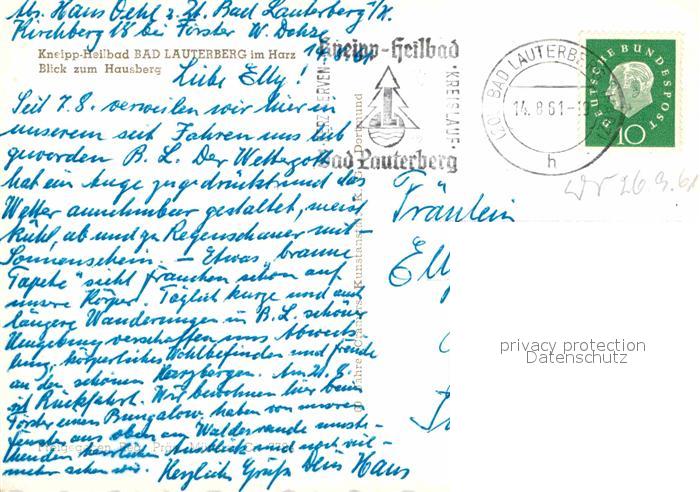 Abs. Hans Oehl z. Zt. Bad Lauterberg i/H.
Kirchberg 18 bei Förster W. Dohrz
Kneipp-Heilbad BAD LAUTERBERG im Harz
Blick zum Hausberg
Liebe Elly!
Seit 7.8. verweilen wir hier in
unserem seit Jahren uns lieb
gewordenen B. L. Der Wettergott
hat ein Auge zugedrückt und das
Wetter annehmbar gestaltet, meist
kühl, ab und zu Regenschauer mit
Sonnenschein. — Etwas „braune
Tapete" sieht Frauchen schon auf
unsre Körper. Täglich kurze und auch
längere Wanderungen in B. L. schöner
Umgebung verschaffen uns Abwechs
lung, körperliches Wohlbefinden und Freude
an den schönen Harzbergen. Am 21. 8.
ist Rückfahrt. Wir bewohnen hier beim
Förster einen Bungalow, haben von unserm
Fenster aus oben am Waldesrande
herrlichen Ausblick und noch viel-
mehr sehen wir. Herzliche Grüße Dein Hans
Kneipp-Heilbad
HARZ NERVEN
KREISLAUF
Bad Lauterberg
(20) BAD LAUTERBERG
14.8.61-
h
DEUTSCHE BUNDESPOST
10
26.9.61
Fräulein
Elly
privacy protection
Datenschutz